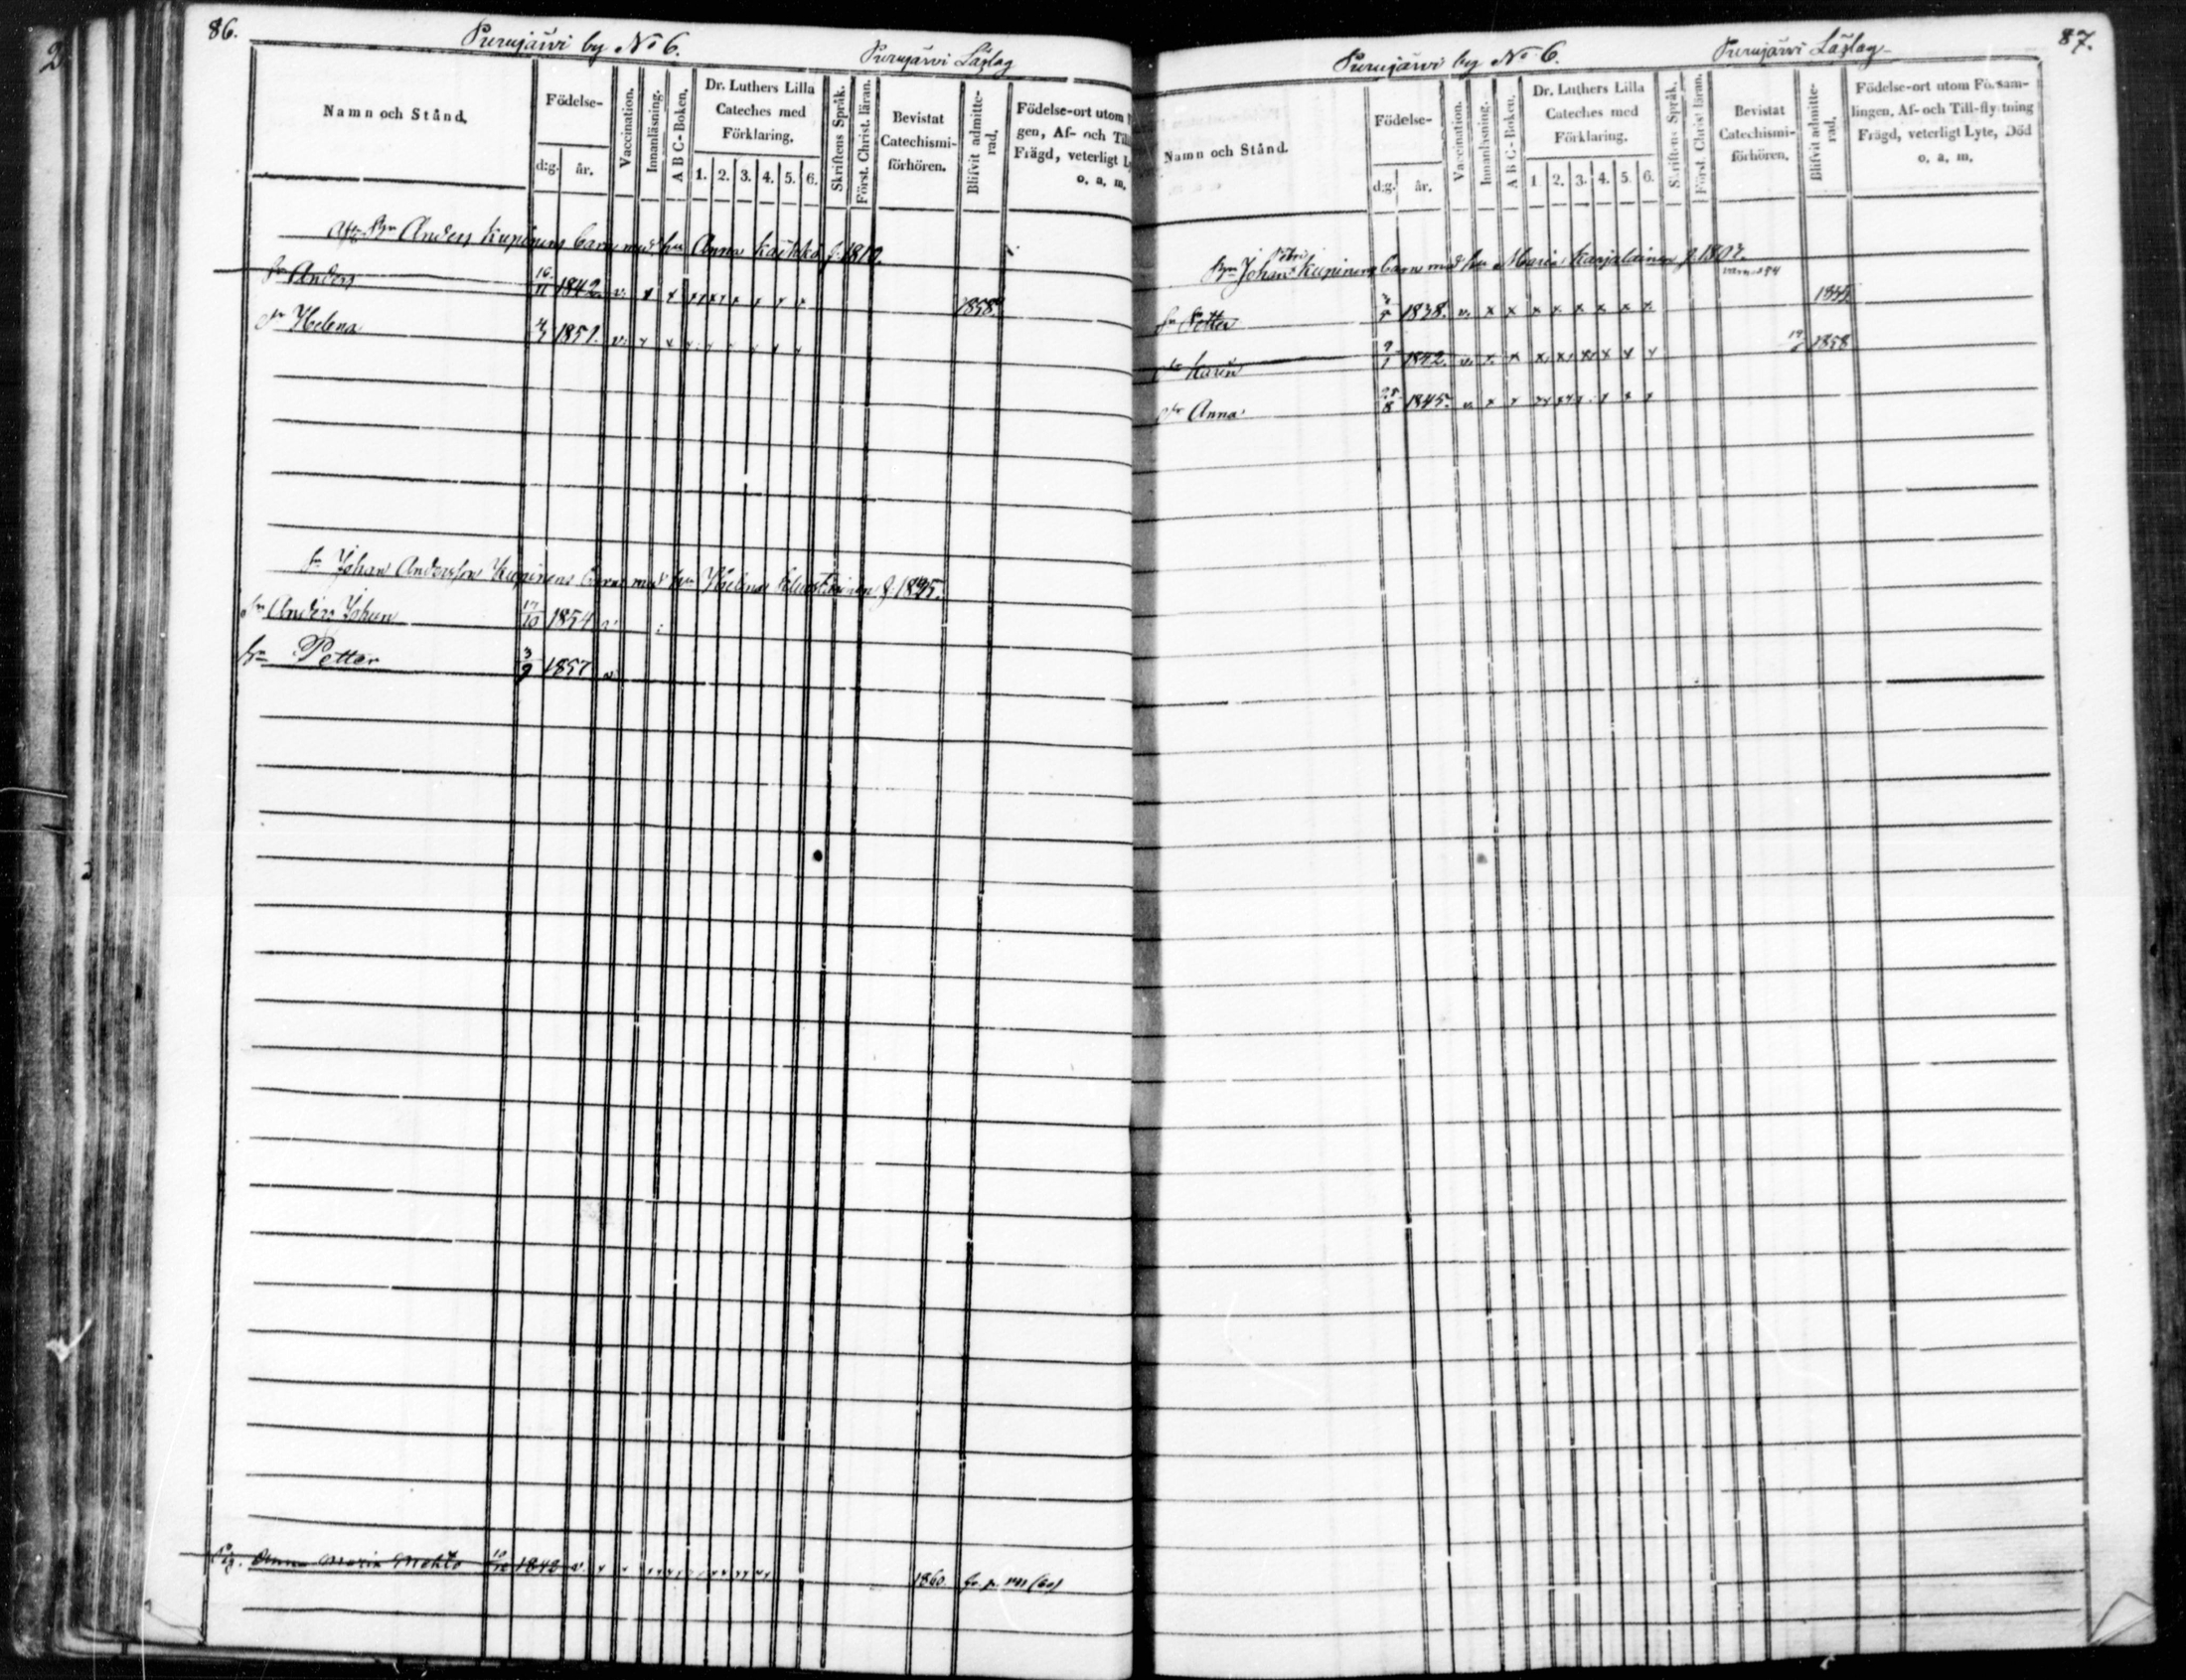 86.
Purujärvi by No 6.
Purujärvi Läslag
Namn och Stånd.
Födelse-
d:g.
år.
Vaccination.
Innanläsning.
A B C-Boken.
Dr. Luthers Lilla
Cateches med
Förklaring.
1. 2. 3. 4. 5. 6.
Skriftens Språk.
Först. Christ. läran.
Bevistat
Catechismi-
förhören.
Blifvit admitte-
rad.
Födelse-ort utom
gen, Af- och
Frägd, veterligt
o. a. m.
Anders Kupinens barn med hu Anna f. 1810.
Sn Anders 16/11 1842. v. x x xx xx x x x x 1858
Dr Helena 4/3 1851. v. x x x x x x x x
Sn Johan Andersson Kupinens barn med hu Helena f. 1835.
Sn Anders Johan 17/10 1854 v
Sn Petter 3/9 1857 v
Pig. Anna Maria Mohto 10/12 1842 v. 1860.
87.
Purujärvi by No 6.
Purujärvi Läslag
Namn och Stånd.
Födelse-
d:g.
år.
Vaccination.
Innanläsning.
A B C-Boken.
Dr. Luthers Lilla
Cateches med
Förklaring.
1 2. 3. 4. 5 6.
Skriftens Språk.
Först. Christ läran.
Bevistat
Catechismi-
förhören.
Blifvit admitte-
rad.
Födelse-ort utom Försam-
lingen, Af- och Till-flyttning
Frägd, veterligt Lyte, Död
o. a. m.
Bn Johan Kupinens barn med hu Maria Karjalainen f. 1807.
Sn Petter 1838. v. x x x x x x x x 1855
Dr Karin 9/1 1842. v. x x x x x x x x 1858
Dr Anna 25/8 1845. v. x x xx xx x x x x